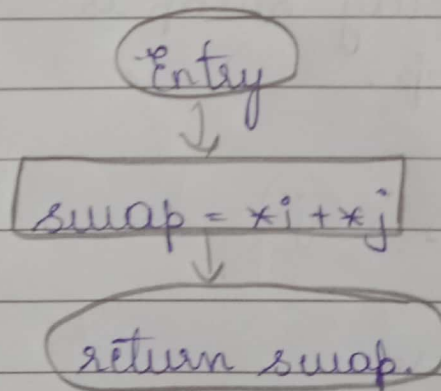 Entry
swap = *i + *j
return swap.